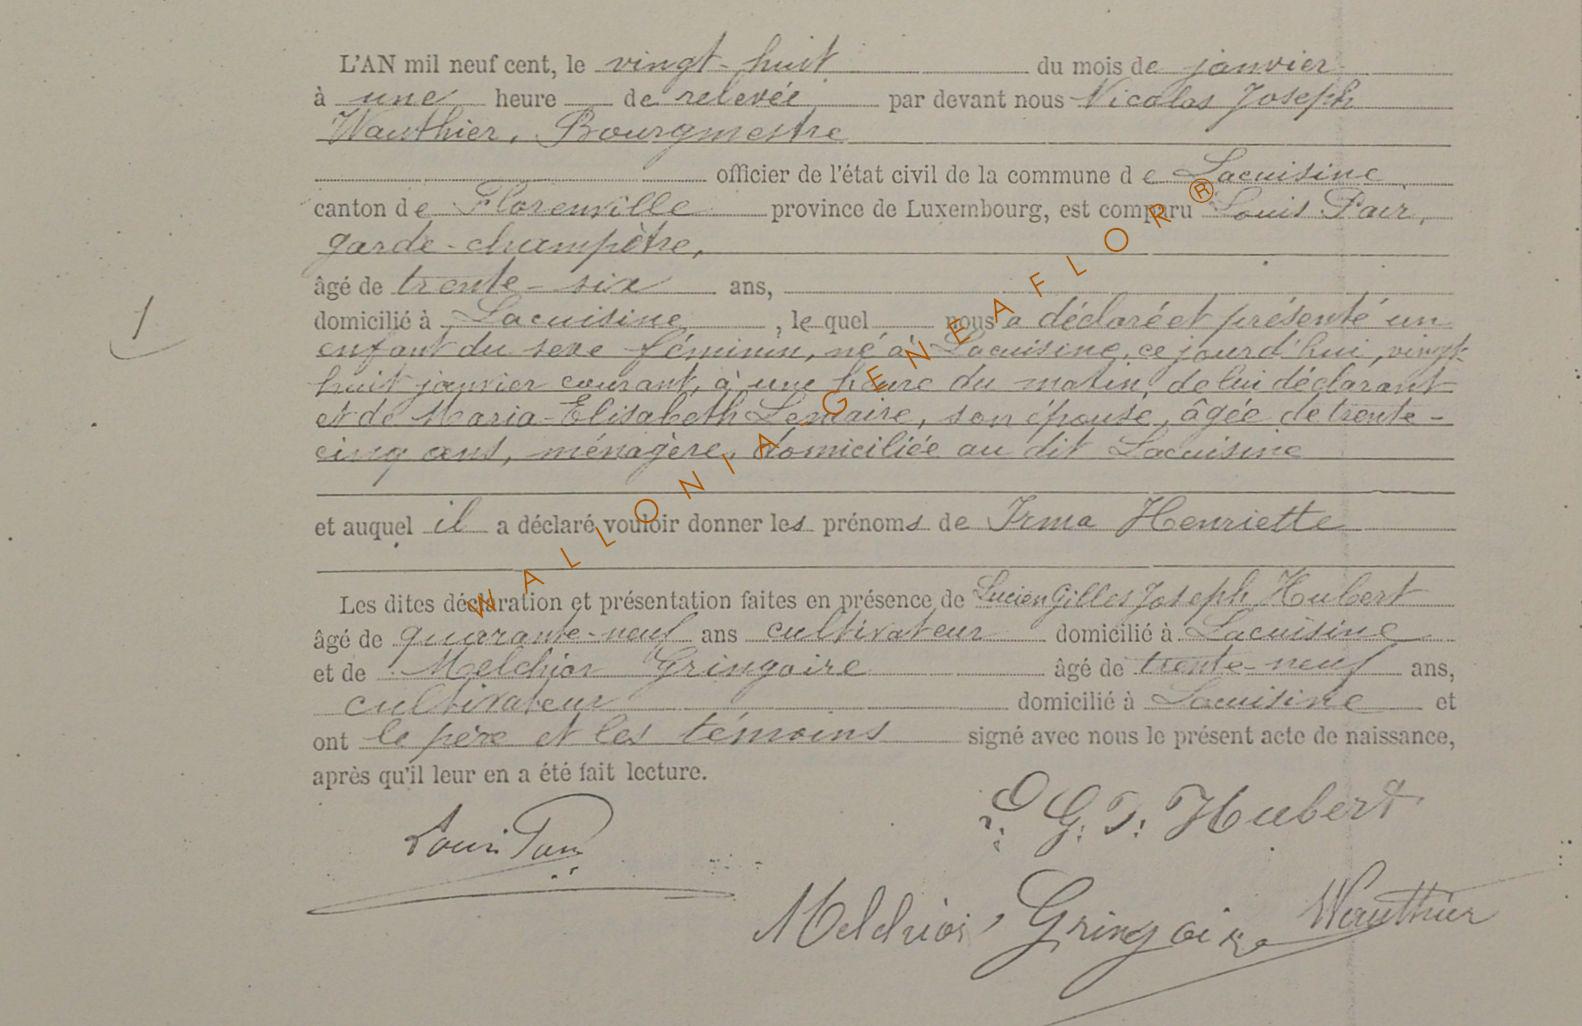 L'AN mil neuf cent, le vingt-huit du mois de janvier
à une heure de relevée par devant nous Nicolas Joseph
Wauthier, Bourgmestre
officier de l'état civil de la commune de Lacuisine
canton de Florenville province de Luxembourg, est comparu Louis
garde-champêtre,
âgé de trente-six ans,
domicilié à Lacuisine, le quel nous a déclaré et présenté un
enfant du sexe féminin, né à Lacuisine, ce jourd'hui, vingt-
huit janvier courant, à une heure du matin, de lui déclarant
et de Maria-Elisabeth Lemaire, son épouse, âgée de trente-
cinq ans, ménagère, domiciliée au dit Lacuisine
et auquel il a déclaré vouloir donner les prénoms de Irma Henriette
Les dites déclaration et présentation faites en présence de Lucien Gilles Joseph Hubert
âgé de quarante-neuf ans cultivateur domicilié à Lacuisine
et de Melchior Gringoire âgé de trente-neuf ans,
cultivateur domicilié à Lacuisine et
ont le père et les témoins signé avec nous le présent acte de naissance,
après qu'il leur en a été fait lecture.
1
G. J. Hubert
Louis
Melchior Gringoire Wauthier
WALLONIA GENEAFLOR®